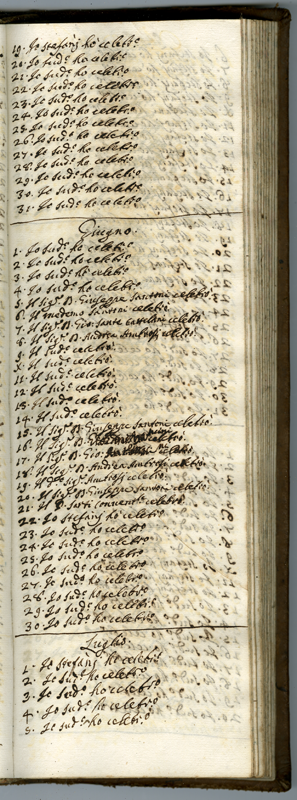 19. Io stefanj ho celeb.to
20. Io sud.o ho celeb.to
21. Io sud.o ho celeb.to
22. Io sud.o ho celebr.o
23. Io sud.o ho celebr.o
24. Io sud.o ho celebr.o
25. Io sud.o ho celebr.o
26. Io sud.o ho celebr.o
27. Io sud.o ho celebr.o
28. Io sud.o ho celebr.o
29. Io sud.o ho celebr.o
30. Io sud.o ho celebr.o
31. Io sud.o ho celebr.o
Giugno
1. Io sud.o ho celebr.o
2. Io sud.o ho celebr.o
3. Io sud.o ho celebr.o
4. Io sud.o ho celebr.o
5. Il Sig.r D. Giuseppe Santoni celebrò
6. Il medemo Santoni celebrò
7. Il Sig.r D. Gio: celebrò
8. Il Sig.r D. Andrea celebrò
9. Il sud.o celebrò
X. Il sud.o celebrò
11. Il sud.o celebrò
12. Il sud.o celebrò
13. Il sud.o celebrò
14. Il sud.o celebrò
15. Il Sig.r D. Giuseppe Santoni celebrò
16. Il Sig.r D. celebrò
17. Il Sig.r D. Gio: celebrò
18. Il Sig.r D. Andrea celebrò
19. Il d.o Sig.r celebrò
20. Il Sig.r D. Giuseppe Santoni celebrò
21. Il P. celebrò
22. Io stefanj ho celebr.o
23. Io sud.o ho celebrò
24. Io sud.o ho celebrò
25. Io sud.o ho celebrò
26. Io sud.o ho celebrò
27. Io sud.o ho celebrò
28. Io sud.o ho celebrò
29. Io sud.o ho celebr.o
30. Io sud.o ho celebr.o
Luglio
1. Io stefanj ho celebr.o
2. Io sud.o ho celebr.o
3. Io sud.o ho celebr.o
4. Io sud.o ho celebr.o
5. Io sud.o ho celebr.o